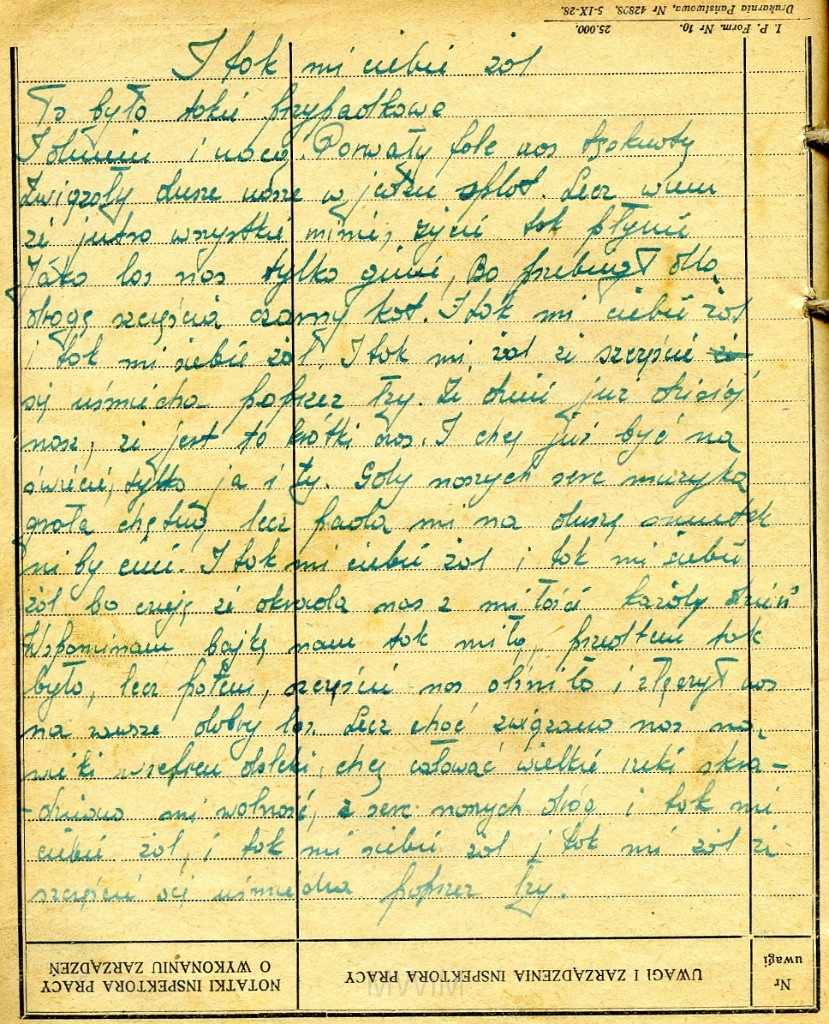 I. P. Form. Nr 10. 25.000.
Drukarnia Państwowa, Nr 42808. 5-IX-28.
I tak mi ciebie żal
To było takie przypadkowe
i nocą. Porwały fale nas
Związały dusze nasze w jeden splot. Lecz wiem
że jutro wszystkie minie, życie tak płynie
Jako los nas tylko ginie, Bo przebiegł
drogę szczęścia czarny kot. I tak mi ciebie żal
i tak mi siebie żal, I tak mi, żal że szczęście
się uśmiecha poprzez łzy. Że dzień już dzisiaj
nasz, że jest to krótki czas. I chcę już być na
świecie, tylko ja i ty. Gdy naszych serc muzyka
grała chętnie, lecz pada mi na duszę smutek
niby cień. I tak mi ciebie żal i tak mi siebie
żal bo czuję że okrada nas z miłości każdy dzień
Wspominam bajkę nam tak miłą, przedtem tak
było, lecz potem, szczęście nas olśniło i złączył nas
na zawsze dobry los. Lecz choć związano nas na
wieki daleki, chcę całować wielkie rzeki skra-
-dziono mi wolność, z serc naszych dróg i tak mi
ciebie żal, i tak mi siebie żal i tak mi żal że
szczęście się uśmiecha poprzez łzy.
Nr uwagi
UWAGI I ZARZĄDZENIA INSPEKTORA PRACY
NOTATKI INSPEKTORA PRACY
O WYKONANIU ZARZĄDZEŃ
MVVIM